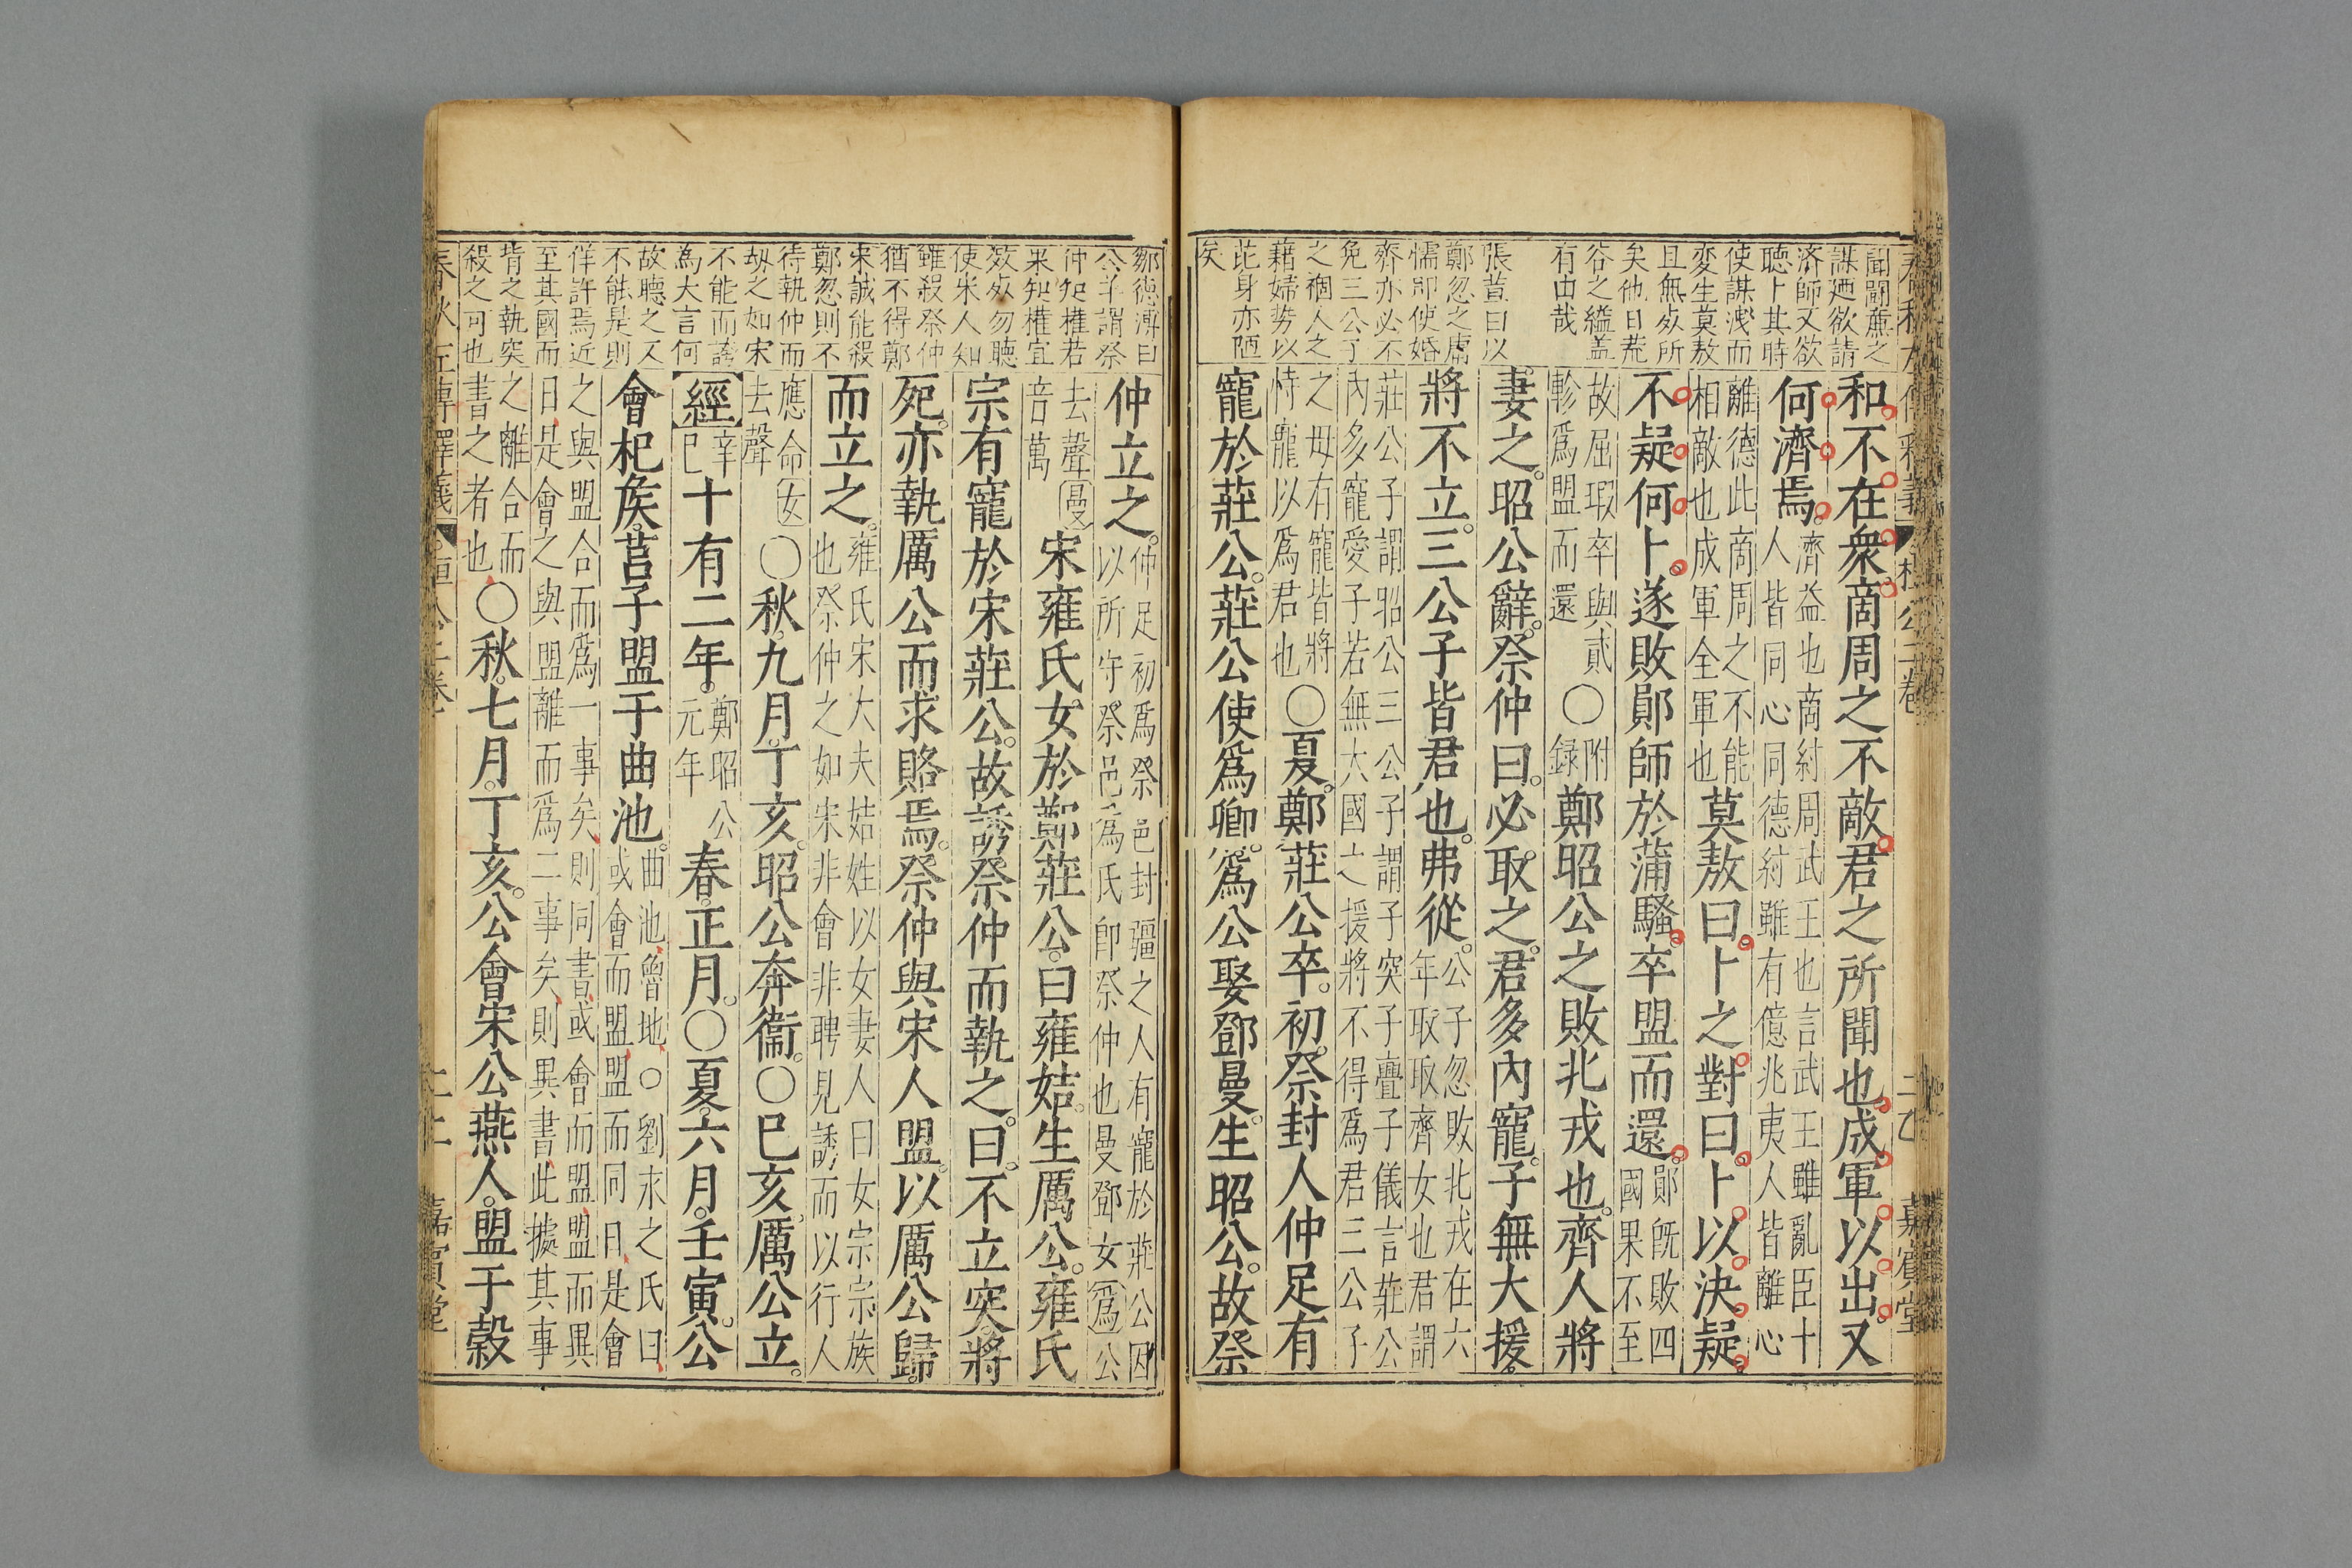 聞鬬廉之
謀廼欲請
濟師又欲
聽卜其時
使謀洩而
変生莫敖
且無䖏所
矣他日荒
谷之縊盖
有由哉
張萱曰以
鄭忽之庸
懦即使婚
齊亦必不
免三公子
之禍人之
藉婦势以
庇身亦陋
矣
和。不在衆。啇周之不敵。君之所聞也。成軍以出。又
何濟焉。濟益也啇紂周武王也言武王雖亂臣十
人皆同心同德紂雖有億兆夷人皆離心
離德此啇周之不能
相敵也成軍全軍也莫敖曰。卜之。對曰。卜以決疑。
不疑何卜。遂敗鄖師於蒲騷。卒盟而還。鄖旣敗四
國果不至
故屈瑕卒與貳
軫爲盟而還〇附
録鄭昭公之敗北戎也。齊人將
妻之。昭公辭。祭仲曰。必取之。君多內寵。子無大援。
將不立。三公子皆君也。弗從。公子忽敗北戎在六
年取取齊女也君謂
莊公子謂昭公三公子謂子突子亹子儀言莊公
內多寵愛子若無大國之援將不得爲君三公子
之毋有寵皆將
恃寵以爲君也〇夏。鄭莊公卒。初。祭封人仲足有
寵於莊公。莊公使爲卿。爲公娶鄧曼。生昭公。故祭
鄒德溥曰
公羊謂祭
仲知權若
果知權宜
效䖏勿聽
使宋人知
雖殺祭仲
猶不得鄭
宋誠能殺
鄭忽則不
待執仲而
刼之如宋
不能而誇
為大言何
故聽之又
不能是則
佯許焉近
至其國而
背之執突
殺之可也
仲立之。仲足初爲祭邑封疆之人有寵於莊公因
以所守祭邑爲氏卽祭仲也曼鄧女爲公
去聲曼
音萬宋雍氏女於鄭莊公。曰雍姞。生厲公。雍氏
宗有寵於宋莊公。故誘祭仲而執之。曰。不立突。將
死。亦執厲公而求賂焉。祭仲與宋人盟。以厲公歸
而立之。雍氏宋大夫姞姓以女妻人曰女宗宗族
也祭仲之如宋非會非聘見誘而以行人
應命女
去聲〇秋。九月。丁亥。昭公奔衞。〇巳亥。厲公立。
經辛
巳十有二年。鄭昭公
元年春。正月。〇夏。六月。壬寅。公
會杞矦。莒子盟于曲池。曲池魯地〇劉永之氏曰
或會而盟盟而同日是會
之與盟合而爲一事矣則同書或會而盟盟而異
日是會之與盟離而爲二事矣則異書此據其事
之離合而
書之者也〇秋。七月。丁亥。公會宋公燕人。盟于穀
春秋左傳釋義 桓公二卷 嘉賓堂